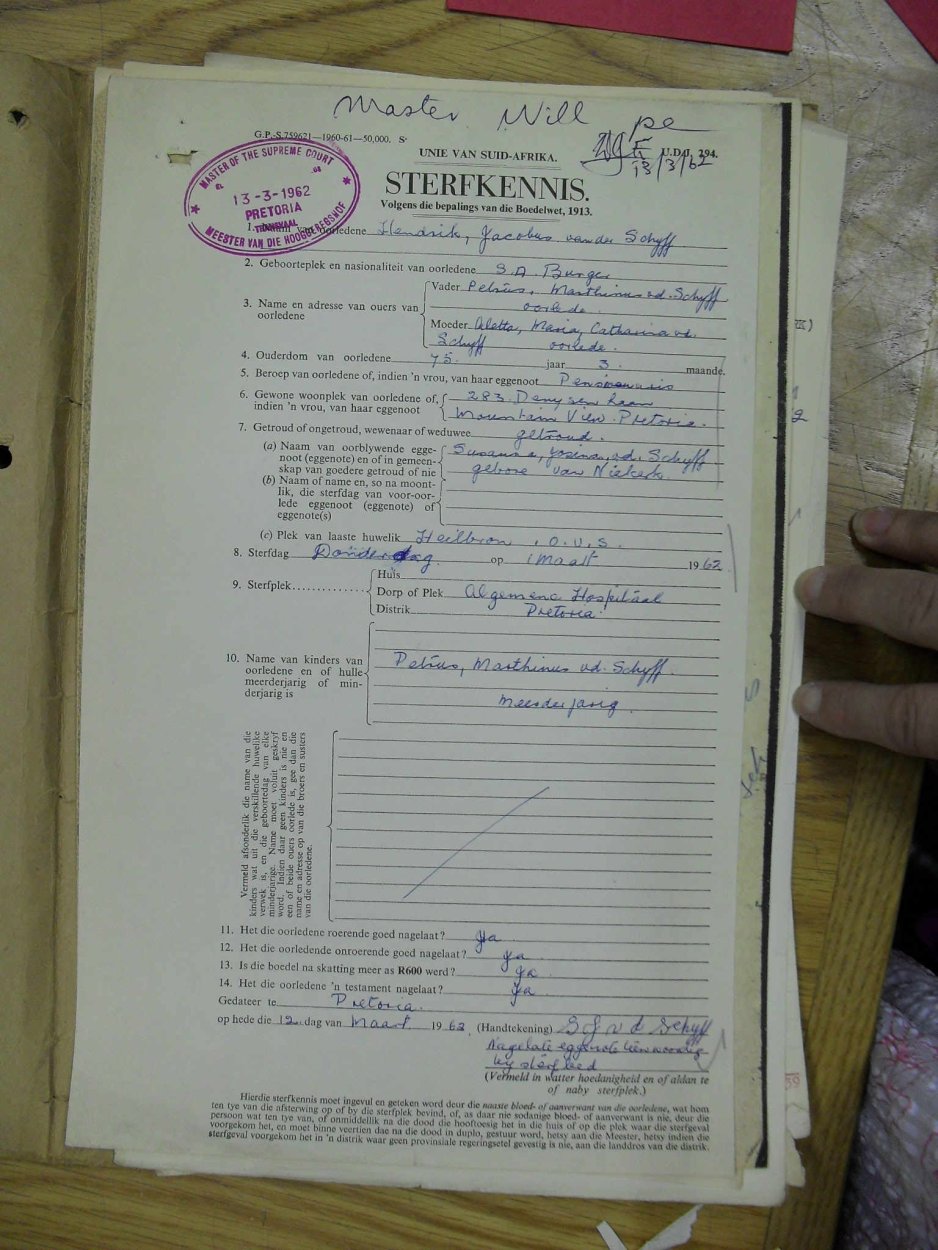 Master Will
G.P.-S.759621—1960-61—50,000. S
UNIE VAN SUID-AFRIKA.
U.D.J. 294.
13/3/62
MASTER OF THE SUPREME COURT
13-3-1962
PRETORIA
TRANSVAAL
MEESTER VAN DIE HOOGGEREGSHOF
STERFKENNIS.
Volgens die bepalings van die Boedelwet, 1913.
1. Naam van oorledene Hendrik, Jacobus van der Schyff
2. Geboorteplek en nasionaliteit van oorledene S.A. Burger
3. Name en adresse van ouers van oorledene
Vader Petrus, Marthinus vd. Schyff
oorlede.
Moeder Aletta, Maria, Catharina vd.
Schyff oorlede.
4. Ouderdom van oorledene 75 jaar 3 maande.
5. Beroep van oorledene of, indien 'n vrou, van haar eggenoot Pensionaris
6. Gewone woonplek van oorledene of, indien 'n vrou, van haar eggenoot
283 Denysen Laan
Mountain View. Pretoria.
7. Getroud of ongetroud, wewenaar of weduwee getroud.
(a) Naam van oorblywende eggenoot (eggenote) en of in gemeenskap van goedere getroud of nie
Susanna, Josina, vd. Schyff
gebore van Niekerk.
(b) Naam of name en, so na moontlik, die sterfdag van voor-oorlede eggenoot (eggenote) of eggenote(s)
(c) Plek van laaste huwelik Heilbron, O.V.S.
8. Sterfdag Donderdag op 1 Maart 1962
9. Sterfplek
Huis
Dorp of Plek Algemene Hospitaal
Distrik Pretoria
10. Name van kinders van oorledene en of hulle meerderjarig of minderjarig is
Petrus, Marthinus vd. Schyff.
Meerderjarig.
Vermeld afsonderlik die name van die
kinders wat uit die verskillende huwelike
verwek is, en die geboortedag van elke
minderjarige. Name moet voluit geskryf
word. Indien daar geen kinders is nie en
een of beide ouers oorlede is, gee dan die
name en adresse op van die broers en susters
van die oorledene.
11. Het die oorledene roerende goed nagelaat? Ja
12. Het die oorledende onroerende goed nagelaat? Ja
13. Is die boedel na skatting meer as R600 werd? Ja
14. Het die oorledene 'n testament nagelaat? Ja
Gedateer te Pretoria.
op hede die 12 dag van Maart 1962. (Handtekening) S J v d Schyff
Nagelate eggenote teenwoordig
by sterfbed
(Vermeld in watter hoedanigheid en of aldan te
of naby sterfplek.)
Hierdie sterfkennis moet ingevul en geteken word deur die naaste bloed- of aanverwant van die oorledene, wat hom
ten tye van die afsterwing op of by die sterfplek bevind, of, as daar nie sodanige bloed- of aanverwant is nie, deur die
persoon wat ten tye van, of onmiddellik na die dood die hooftoesig het in die huis of op die plek waar die sterfgeval
voorgekom het, en moet binne veertien dae na die dood in duplo, gestuur word, hetsy aan die Meester, hetsy indien die
sterfgeval voorgekom het in 'n distrik waar geen provinsiale regeringsetel gevestig is nie, aan die landdros van die distrik.